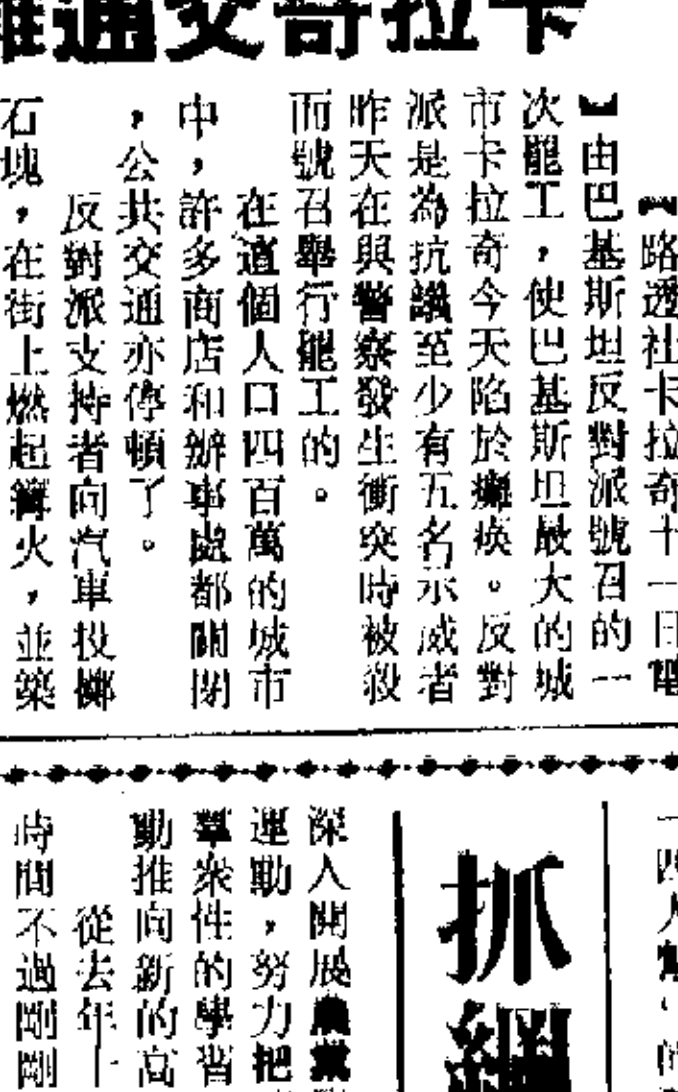 卡拉奇交通癱
【路透社卡拉奇十一日電
】由巴基斯坦反對派號召的一
次罷工，使巴基斯坦最大的城
市卡拉奇今天陷於癱瘓。反對
派是為抗議至少有五名示威者
昨天在與警察發生衝突時被殺
而號召舉行罷工的。
在這個人口四百萬的城市
中，許多商店和辦事處都關閉
，公共交通亦停頓了。
反對派支持者向汽車投擲
石塊，在街上燃起篝火，並築
一四人
抓綱
深入開展農業
運動，努力把
羣衆性的學習
動推向新的高
從去年十
時間不過剛剛